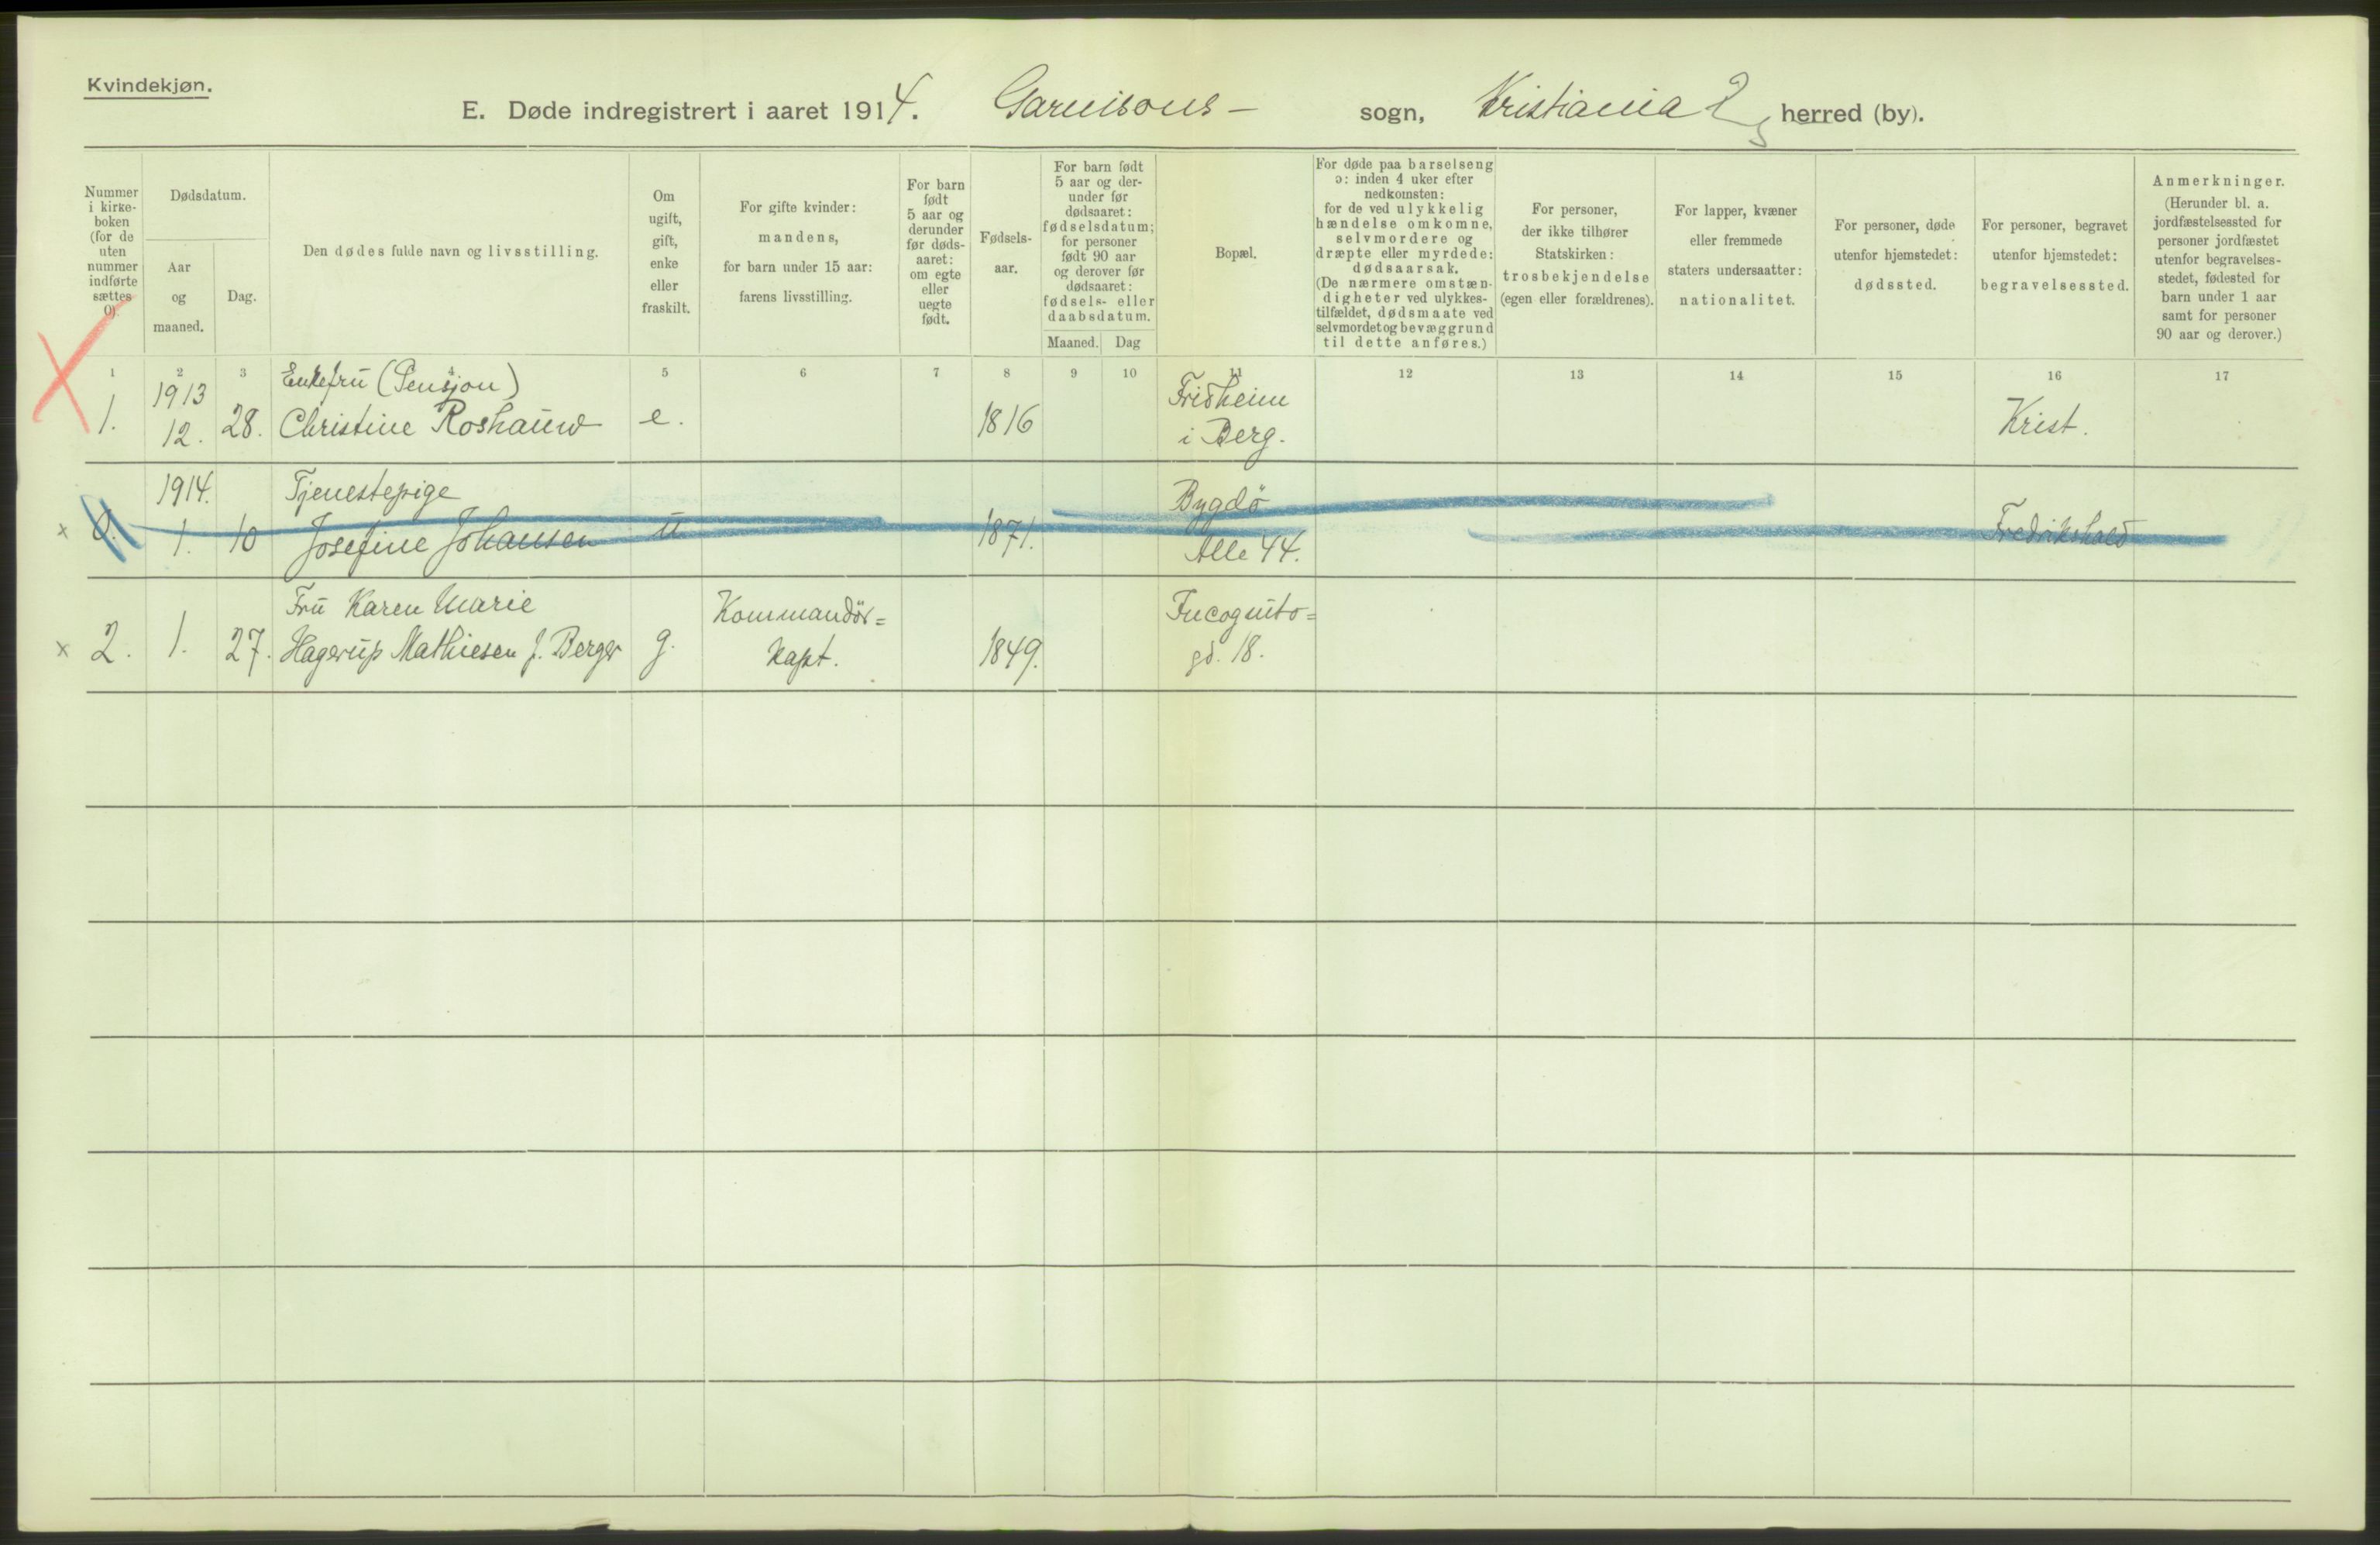 Kvindekjøn.
E. Døde indregistrert i aaret 1914. Garnisons- sogn, Kristiania herred (by).
Nummer i kirke-boken (for de uten nummer indførte sættes 0).
Dødsdatum.
Aar og maaned.
Dag.
Den dødes fulde navn og livsstilling.
Om ugift, gift, enke eller fraskilt.
For gifte kvinder: mandens, for barn under 15 aar: farens livsstilling.
For barn født 5 aar og derunder før døds-aaret: om egte eller uegte født.
Fødsels-aar.
For barn født 5 aar og der-under før dødsaaret: fødselsdatum; for personer født 90 aar og derover før dødsaaret: fødsels- eller daabsdatum.
Maaned. Dag
Bopæl.
For døde paa barselseng ɔ: inden 4 uker efter nedkomsten: for de ved ulykkelig hændelse omkomne, selvmordere og dræpte eller myrdede: dødsaarsak. (De nærmere omstæn-digheter ved ulykkes-tilfældet, dødsmaate ved selvmordet og bevæggrund til dette anføres.)
For personer, der ikke tilhører Statskirken: trosbekjendelse (egen eller forældrenes).
For lapper, kvæner eller fremmede staters undersaatter: nationalitet.
For personer, døde utenfor hjemstedet: dødssted.
For personer, begravet utenfor hjemstedet: begravelsessted.
Anmerkninger. (Herunder bl. a. jordfæstelsessted for personer jordfæstet utenfor begravelses-stedet, fødested for barn under 1 aar samt for personer 90 aar og derover.)
1 2 3 4 5 6 7 8 9 10 11 12 13 14 15 16 17
1913 Enkefru (Pensjon) Fridheim
1. 12. 28. Christine Roshauw e. 1816 i Berg. Krist.
1914. Tjenestepige Bygdö
x 0. 1. 10 Josefine Johansen u 1871. Alle 44. Fredrikshald
Fru Karen Marie Kommandör= Incognito=
x 2. 1. 27. Hagerup Mathiesen f. Berger g. Kapt. 1849. gd. 18.